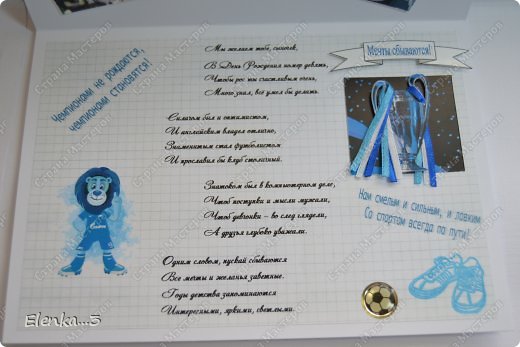 Чемпионами не рождаются,
чемпионами становятся!
Мы желаем тебе, сыночек,
В День Рождения номер девять,
Чтобы рос ты счастливым очень,
Много знал, всё умел бы делать.
Силачом был и оптимистом,
И английским владел отлично,
Знаменитым стал футболистом
И прославил бы клуб столичный.
Знатоком был в компьютерном деле,
Чтоб поступки и мысли мужали,
Чтоб девчонки - во след глядели,
А друзья глубоко уважали.
Одним словом, пускай сбываются
Все мечты и желанья заветные.
Годы детства запоминаются
Интересными, яркими, светлыми.
Мечты сбываются!
Нам смелым и сильным, и ловким
Со спортом всегда по пути!
Elenka...5
Страна Мастеров